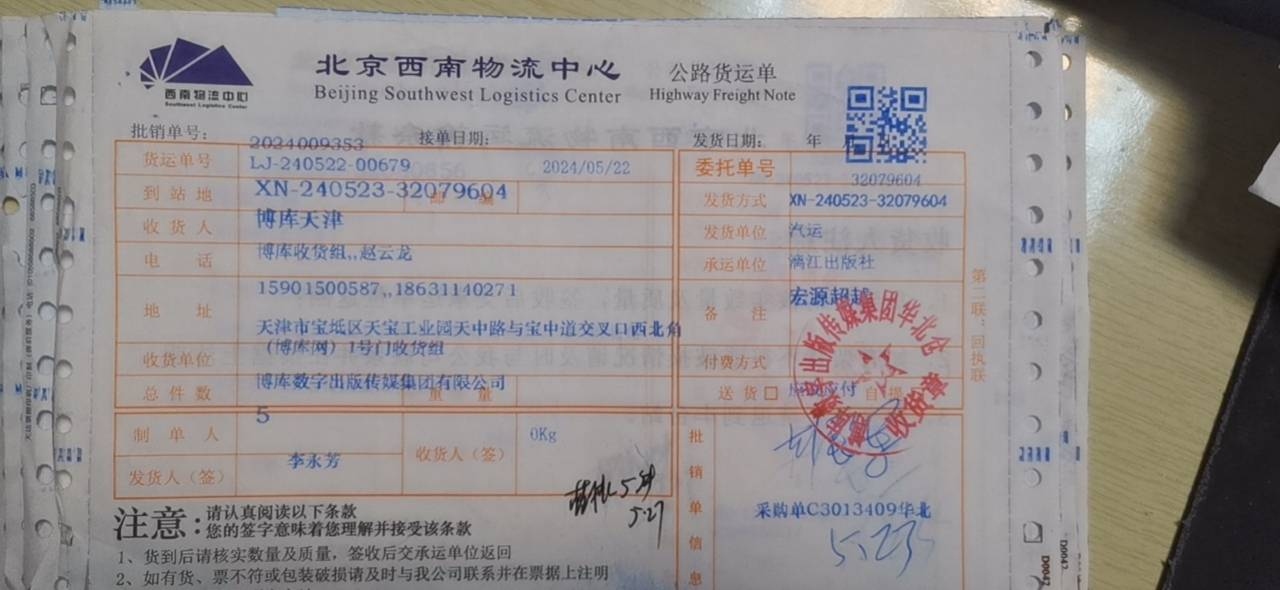 西南物流中心
Southwest Logistics Center
北京西南物流中心
Beijing Southwest Logistics Center
公路货运单
Highway Freight Note
批销单号：
2024009353
接单日期：
发货日期： 年 月
货运单号
LJ-240522-00679
2024/05/22
委托单号
32079604
到站地
XN-240523-32079604
邮 编
发货方式
XN-240523-32079604
收货人
博库天津
发货单位
汽运
电 话
博库收货组,,赵云龙
承运单位
漓江出版社
地 址
15901500587,,18631140271
天津市宝坻区天宝工业园天中路与宝中道交叉口西北角
（博库网）1号门收货组
备 注
宏源超越
收货单位
博库数字出版传媒集团有限公司
付费方式
总件数
5
重 量
0Kg
送 货 □
应付
自提
出版传媒集团华北仓
收货章
制单人
李永芳
发货人（签）
收货人（签）
5.27
批销单信息
采购单C3013409华北
5.23
第二联：回执联
注意：
请认真阅读以下条款
您的签字意味着您理解并接受该条款
1、货到后请核实数量及质量，签收后交承运单位返回
2、如有货、票不符或包装破损请及时与我公司联系并在票据上注明
D0042